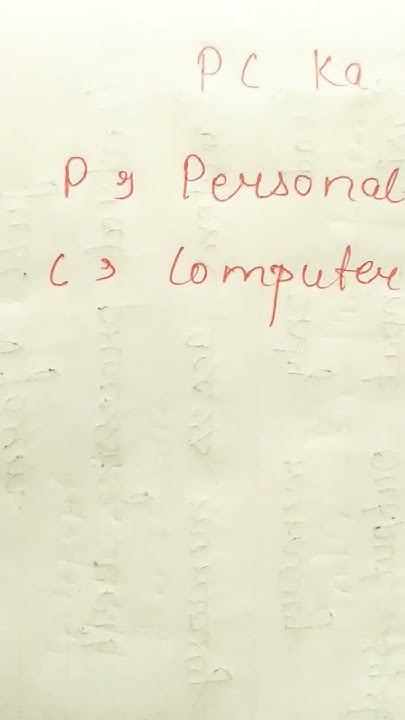 PC Ka
P → Personal
C → Computer